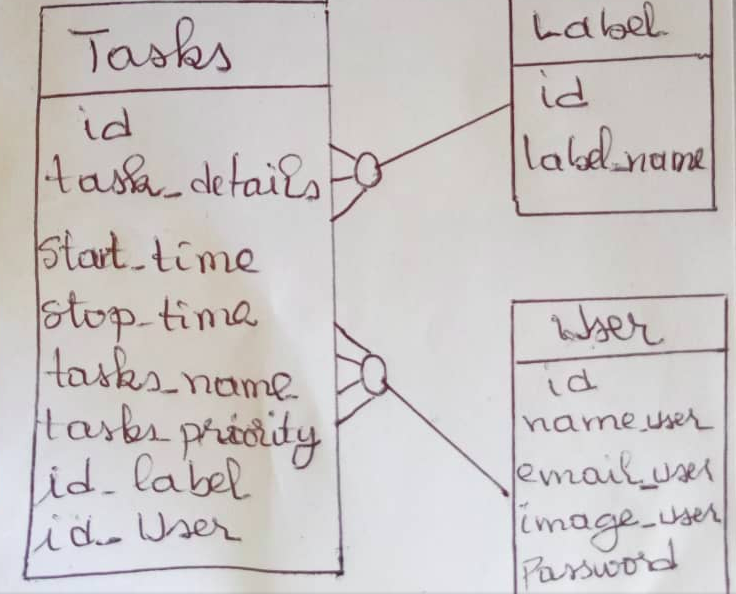 Tasks
id
task_details
start_time
stop_time
tasks_name
tasks priority
id_label
id_User
Label
id
label_name
User
id
name_user
email_user
image_user
Password